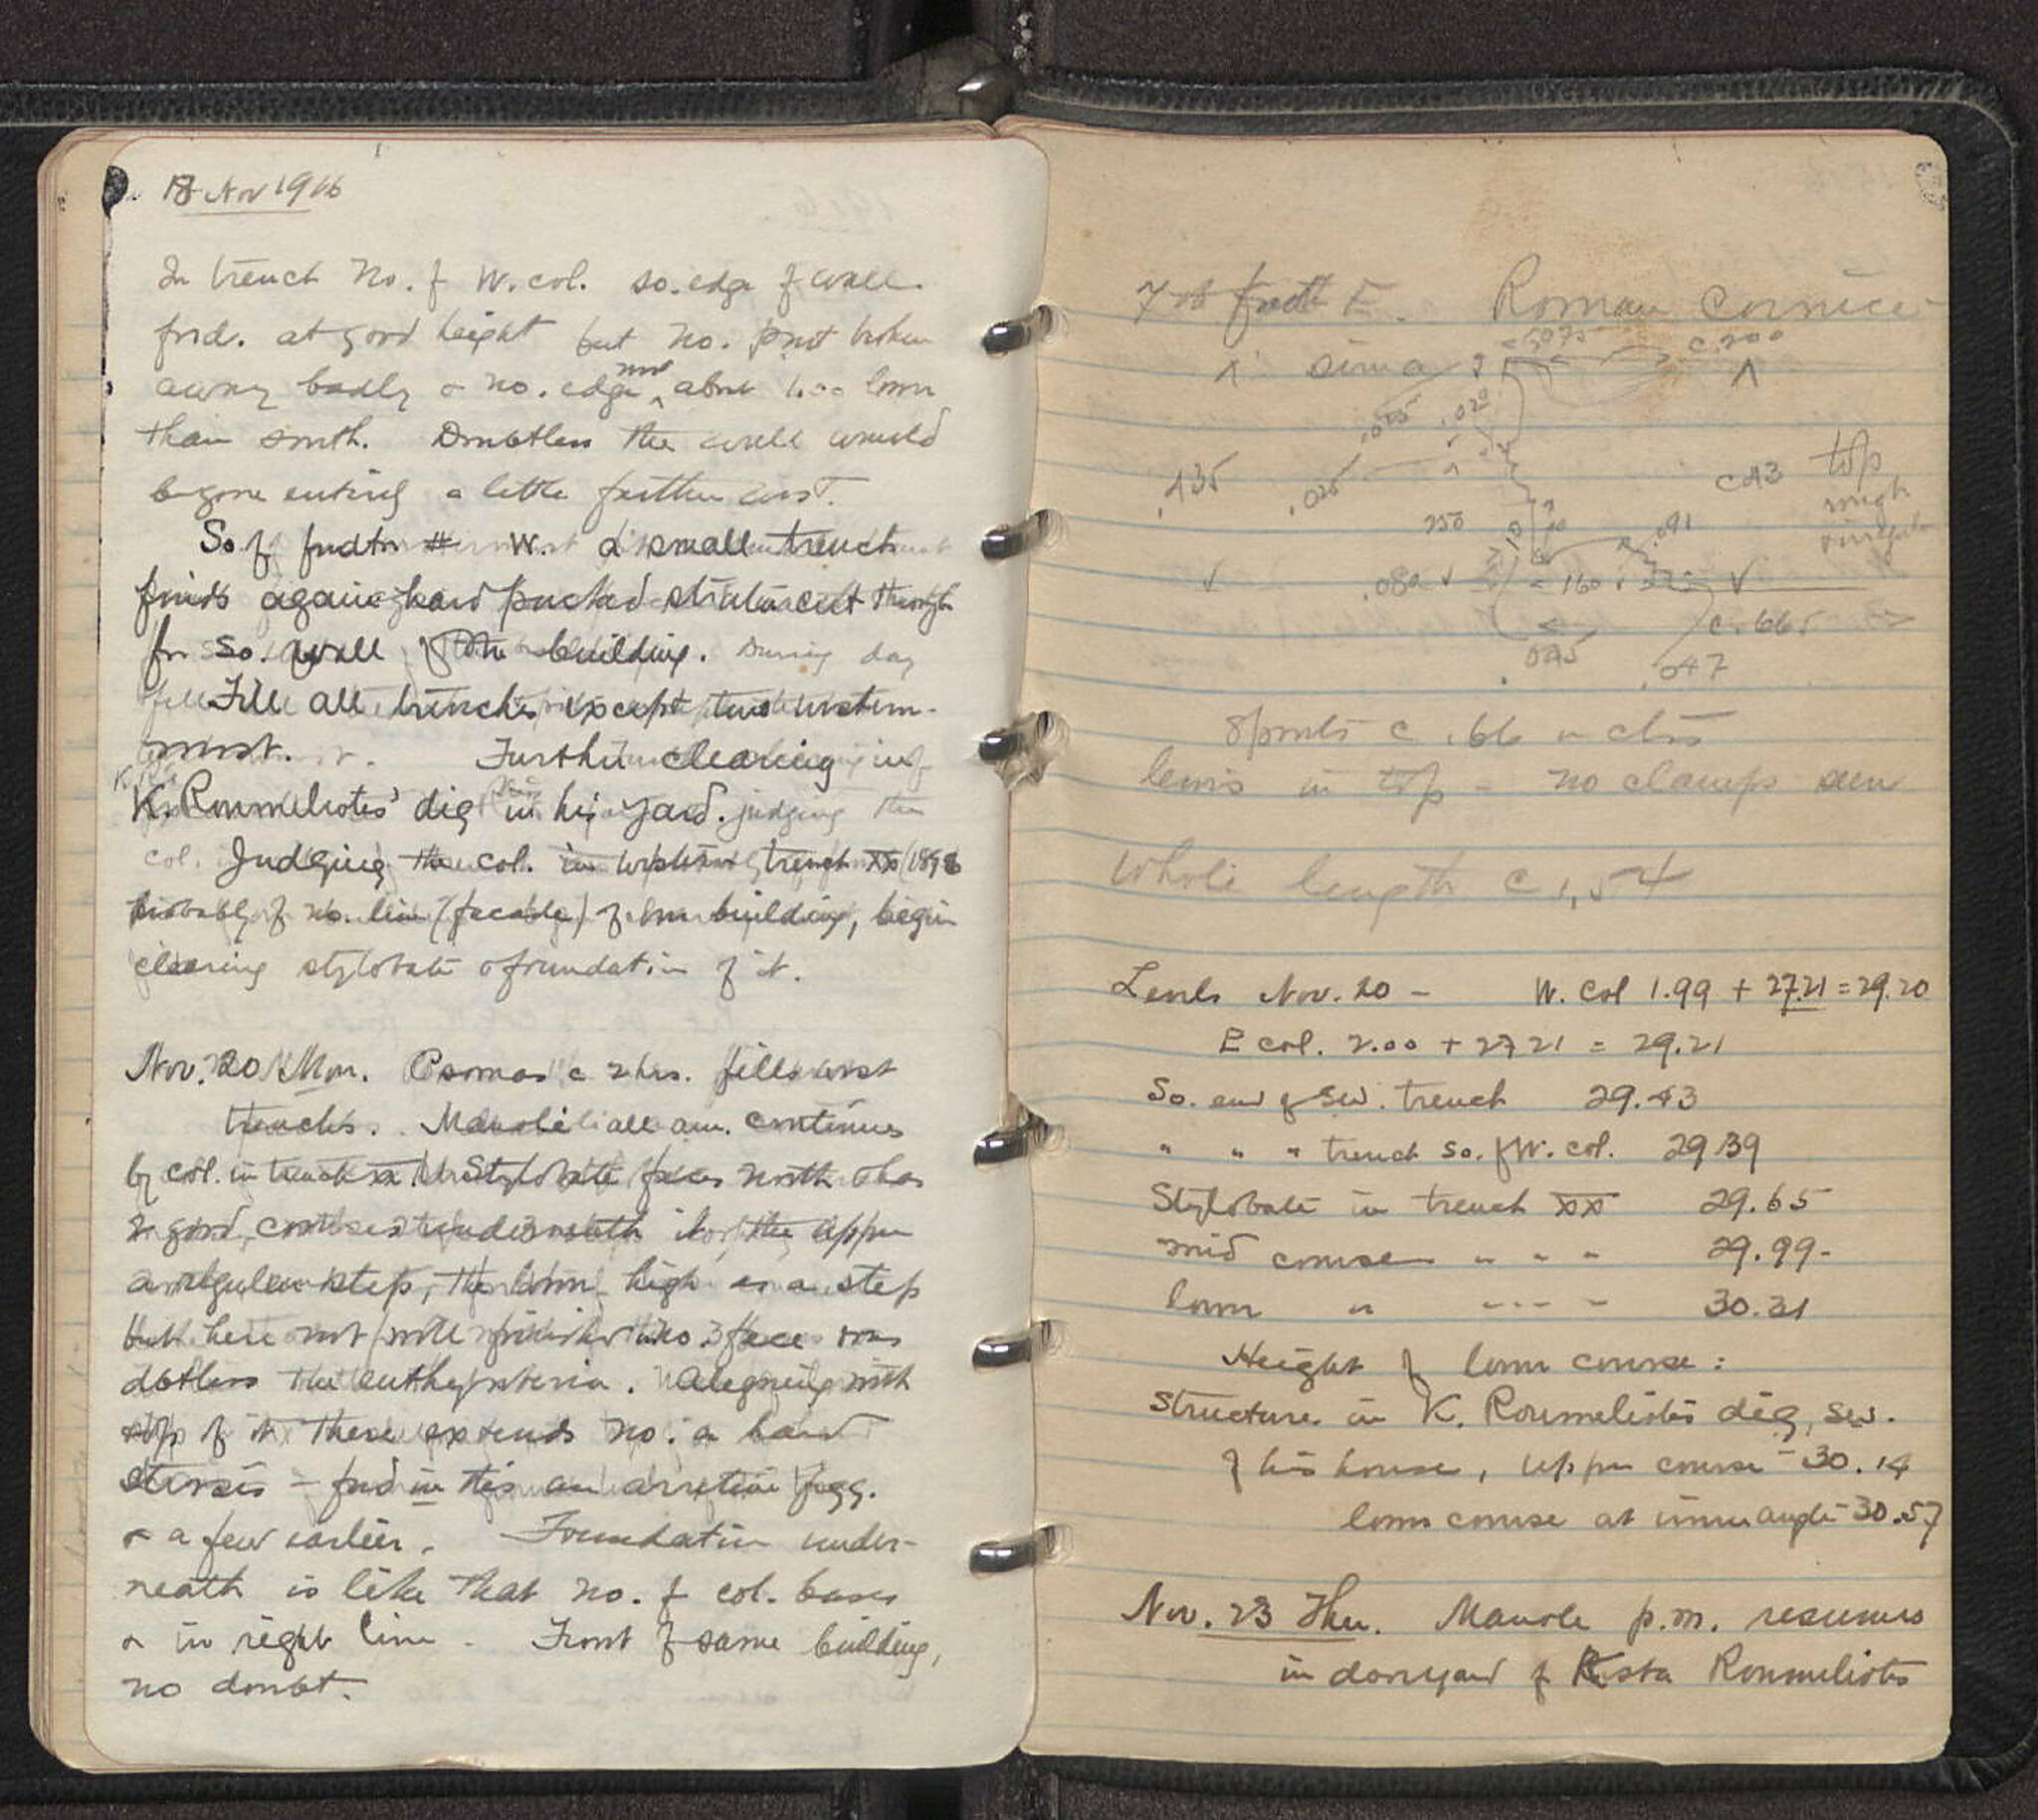 18 Nov 1916
In trench no. of W. col. so. edge of wall
fnd. at good height but no. part broken
away badly & no. edge now about 1.00 lower
than south. Doubtless the wall would
be gone entirely a little further west.
So. of fndtn W. a small trench
finds again hard packed stratum cut through
for so. wall of the building. During day
Fill all trenches except two western-
most. Further clearing in
K. Roumeliotes' dig in his yard.
Judging the col. in western trench XX (1898
probably of no. line (facade) of our building, begin
clearing stylobate & foundation of it.
Nov. 20 Mon. Cosmas c 2 hrs. fills west
trenches. Manoli all am. continues
by col. in trench XX. Stylobate faces north & has
2 good courses underneath it, the upper
a regular step, the lower high as a step
but here not well finished no. face was
dbtless the euthynteria. Aligning with
top of it there extends no. a hard
stereos - fnd in this an arretine fragg.
& a few earlier. Foundation under-
neath is like that no. of col. bases
& in right line. Front of same building,
no doubt.
Roman Cornice
sima
.5075 c.200
.025 .020
.135 .025 c.43 top
rough
& irregular
250 .091
.080 160
c.665
.095 .047
spouts c .66 m ctrs
lewis in top - no clamps seen
Whole length c 1,54
Levels Nov. 20 - W. Col 1.99 + 27.21 = 29.20
E col. 2.00 + 27 21 = 29.21
So. end of SW. trench 29.43
" " " trench so. of W. col. 29 39
Stylobate in trench XX 29.65
mid course " " " 29.99-
lower " " " " 30.31
Height of lower course:
Structure in K. Roumeliotis dig, SW.
of his house, upper course - 30.14
lower course at inner angle - 30.57
Nov. 23 Thu. Manole p.m. resumes
in dooryard of Kosta Roumeliotis